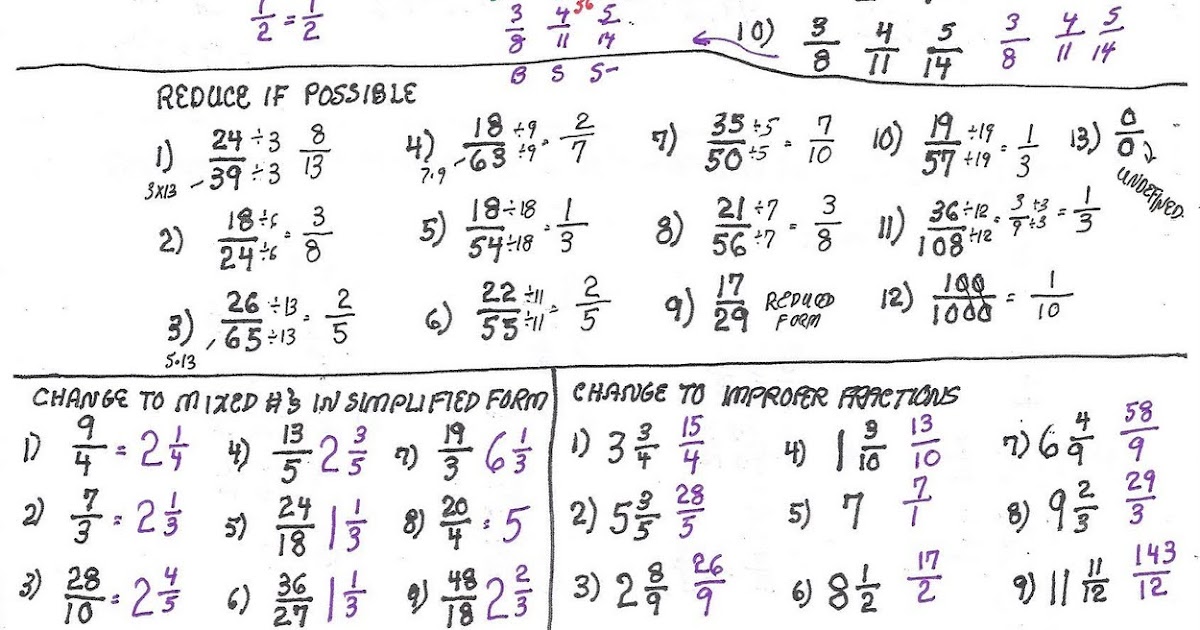 1/2 = 1/2
3/8 4/11 36 5/14
B S S-
10) 3/8 4/11 5/14 3/8 4/11 5/14
REDUCE IF POSSIBLE
1) 24/39 ÷3/÷3 8/13
3x13
4) 18/63 ÷9/÷9 = 2/7
7·9
7) 35/50 ÷5/÷5 = 7/10
10) 19/57 ÷19/÷19 = 1/3
13) 0/0
UNDEFINED
2) 18/24 ÷6/÷6 = 3/8
5) 18/54 ÷18/÷18 = 1/3
8) 21/56 ÷7/÷7 = 3/8
11) 36/108 ÷12/÷12 = 3/9 ÷3/÷3 = 1/3
3) 26/65 ÷13/÷13 = 2/5
5·13
6) 22/55 ÷11/÷11 = 2/5
9) 17/29 REDUCED
FORM
12) 100/1000 = 1/10
CHANGE TO MIXED #'S IN SIMPLIFIED FORM
1) 9/4 = 2 1/4
4) 13/5 2 3/5
7) 19/3 6 1/3
2) 7/3 = 2 1/3
5) 24/18 1 1/3
8) 20/4 = 5
3) 28/10 = 2 4/5
6) 36/27 1 1/3
9) 48/18 2 2/3
CHANGE TO IMPROPER FRACTIONS
1) 3 3/4 15/4
4) 1 3/10 13/10
7) 6 4/9 58/9
2) 5 3/5 28/5
5) 7 7/1
8) 9 2/3 29/3
3) 2 8/9 26/9
6) 8 1/2 17/2
9) 11 11/12 143/12